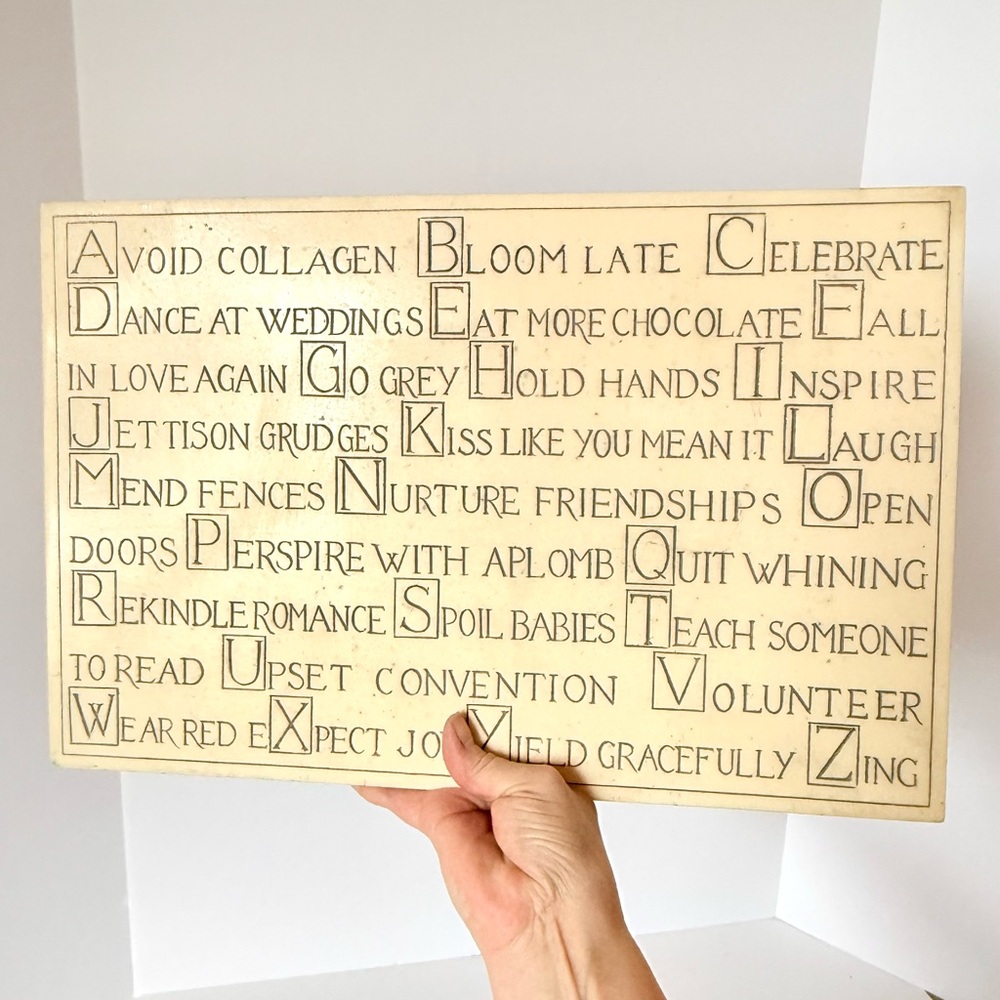 AVOID COLLAGEN BLOOM LATE CELEBRATE
DANCE AT WEDDINGS EAT MORE CHOCOLATE FALL
IN LOVE AGAIN GO GREY HOLD HANDS INSPIRE
JETTISON GRUDGES KISS LIKE YOU MEAN IT LAUGH
MEND FENCES NURTURE FRIENDSHIPS OPEN
DOORS PERSPIRE WITH APLOMB QUIT WHINING
REKINDLE ROMANCE SPOIL BABIES TEACH SOMEONE
TO READ UPSET CONVENTION VOLUNTEER
WEAR RED EXPECT YIELD GRACEFULLY ZING